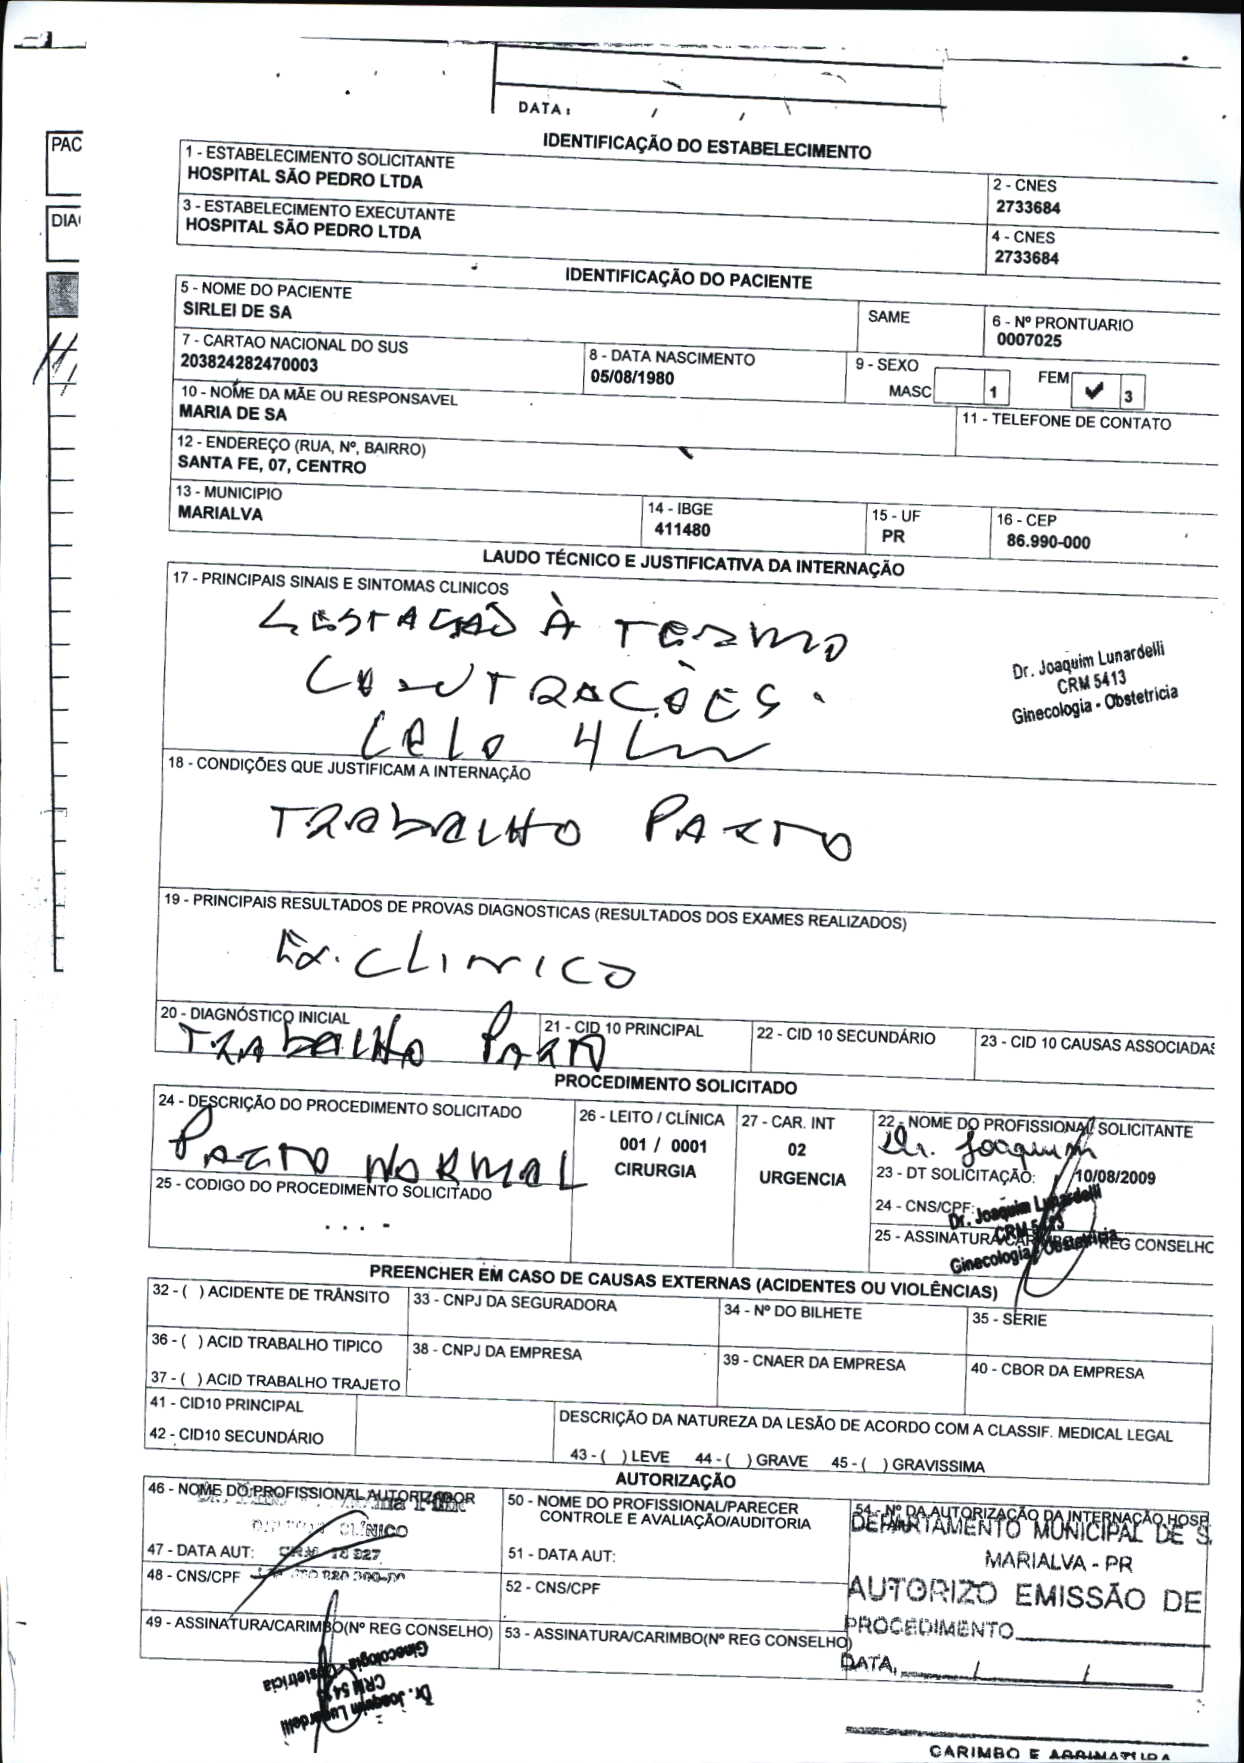 DATA: / /
PAC
DIA
IDENTIFICAÇÃO DO ESTABELECIMENTO
1 - ESTABELECIMENTO SOLICITANTE
HOSPITAL SÃO PEDRO LTDA
2 - CNES
2733684
3 - ESTABELECIMENTO EXECUTANTE
HOSPITAL SÃO PEDRO LTDA
4 - CNES
2733684
IDENTIFICAÇÃO DO PACIENTE
5 - NOME DO PACIENTE
SIRLEI DE SA
SAME
6 - Nº PRONTUARIO
0007025
7 - CARTAO NACIONAL DO SUS
203824282470003
8 - DATA NASCIMENTO
05/08/1980
9 - SEXO
MASC 1 FEM ✔ 3
10 - NOME DA MÃE OU RESPONSAVEL
MARIA DE SA
11 - TELEFONE DE CONTATO
12 - ENDEREÇO (RUA, Nº, BAIRRO)
SANTA FE, 07, CENTRO
13 - MUNICIPIO
MARIALVA
14 - IBGE
411480
15 - UF
PR
16 - CEP
86.990-000
LAUDO TÉCNICO E JUSTIFICATIVA DA INTERNAÇÃO
17 - PRINCIPAIS SINAIS E SINTOMAS CLINICOS
GESTAÇÃO À TERMO
CONTRAÇÕES.
COLO 4 cm
Dr. Joaquim Lunardelli
CRM 5413
Ginecologia - Obstetricia
18 - CONDIÇÕES QUE JUSTIFICAM A INTERNAÇÃO
TRABALHO PARTO
19 - PRINCIPAIS RESULTADOS DE PROVAS DIAGNOSTICAS (RESULTADOS DOS EXAMES REALIZADOS)
Ex. CLINICO
20 - DIAGNÓSTICO INICIAL
TRABALHO PARTO
21 - CID 10 PRINCIPAL
22 - CID 10 SECUNDÁRIO
23 - CID 10 CAUSAS ASSOCIADAS
PROCEDIMENTO SOLICITADO
24 - DESCRIÇÃO DO PROCEDIMENTO SOLICITADO
PARTO NORMAL
25 - CODIGO DO PROCEDIMENTO SOLICITADO
. . . -
26 - LEITO / CLÍNICA
001 / 0001
CIRURGIA
27 - CAR. INT
02
URGENCIA
22 - NOME DO PROFISSIONAL SOLICITANTE
Dr. Joaquim
23 - DT SOLICITAÇÃO: 10/08/2009
24 - CNS/CPF:
Dr. Joaquim Lunardelli
CRM 5413
25 - ASSINATURA/CARIMBO(Nº REG CONSELHO
Ginecologia - Obstetricia
PREENCHER EM CASO DE CAUSAS EXTERNAS (ACIDENTES OU VIOLÊNCIAS)
32 - ( ) ACIDENTE DE TRÂNSITO
33 - CNPJ DA SEGURADORA
34 - Nº DO BILHETE
35 - SERIE
36 - ( ) ACID TRABALHO TIPICO
38 - CNPJ DA EMPRESA
39 - CNAER DA EMPRESA
40 - CBOR DA EMPRESA
37 - ( ) ACID TRABALHO TRAJETO
41 - CID10 PRINCIPAL
42 - CID10 SECUNDÁRIO
DESCRIÇÃO DA NATUREZA DA LESÃO DE ACORDO COM A CLASSIF. MEDICAL LEGAL
43 - ( ) LEVE 44 - ( ) GRAVE 45 - ( ) GRAVISSIMA
AUTORIZAÇÃO
46 - NOME DO PROFISSIONAL AUTORIZADOR
CLÍNICO
47 - DATA AUT:
48 - CNS/CPF
49 - ASSINATURA/CARIMBO(Nº REG CONSELHO)
Dr. Joaquim Lunardelli
CRM 5413
Ginecologia - Obstetricia
50 - NOME DO PROFISSIONAL/PARECER
CONTROLE E AVALIAÇÃO/AUDITORIA
51 - DATA AUT:
52 - CNS/CPF
53 - ASSINATURA/CARIMBO(Nº REG CONSELHO)
54 - Nº DA AUTORIZAÇÃO DA INTERNAÇÃO HOSP
DEPARTAMENTO MUNICIPAL DE S.
MARIALVA - PR
AUTORIZO EMISSÃO DE
PROCEDIMENTO
DATA, / /
CARIMBO E ASSINATURA